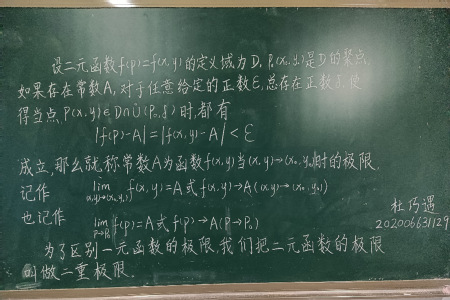 设二元函数f(P)=f(x,y)的定义域为D,P₀(x₀,y₀)是D的聚点.
如果存在常数A,对于任意给定的正数ε,总存在正数δ,使
得当点P(x,y)∈D∩Ů(P₀,δ)时,都有
|f(P)-A|=|f(x,y)-A|<ε
成立,那么就称常数A为函数f(x,y)当(x,y)→(x₀,y₀)时的极限,
记作 lim(x,y)→(x₀,y₀) f(x,y)=A 或 f(x,y)→A((x,y)→(x₀,y₀))
也记作 limP→P₀ f(P)=A 或 f(P)→A(P→P₀)
为了区别一元函数的极限,我们把二元函数的极限
叫做二重极限.
杜巧遇
202006631129